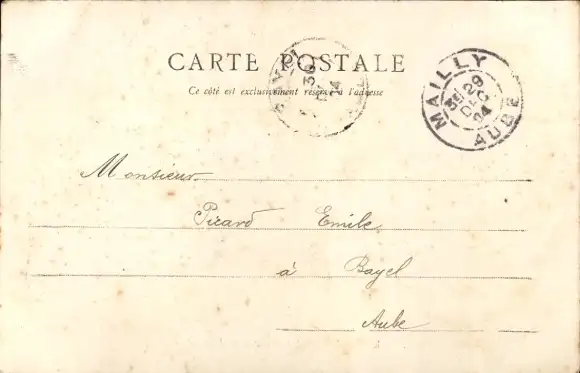 CARTE POSTALE
Ce côté est exclusivement réservé à l'adresse
30
04
MAILLY
29
DEC
04
AUBE
Monsieur
Picard Emile
à Bayel
Aube